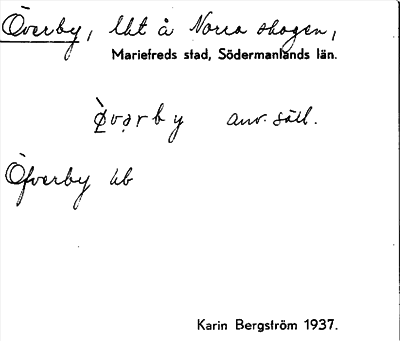 Överby, lht å Norra skogen,
Mariefreds stad, Södermanlands län.
anv. säll.
Öfverby
Karin Bergström 1937.